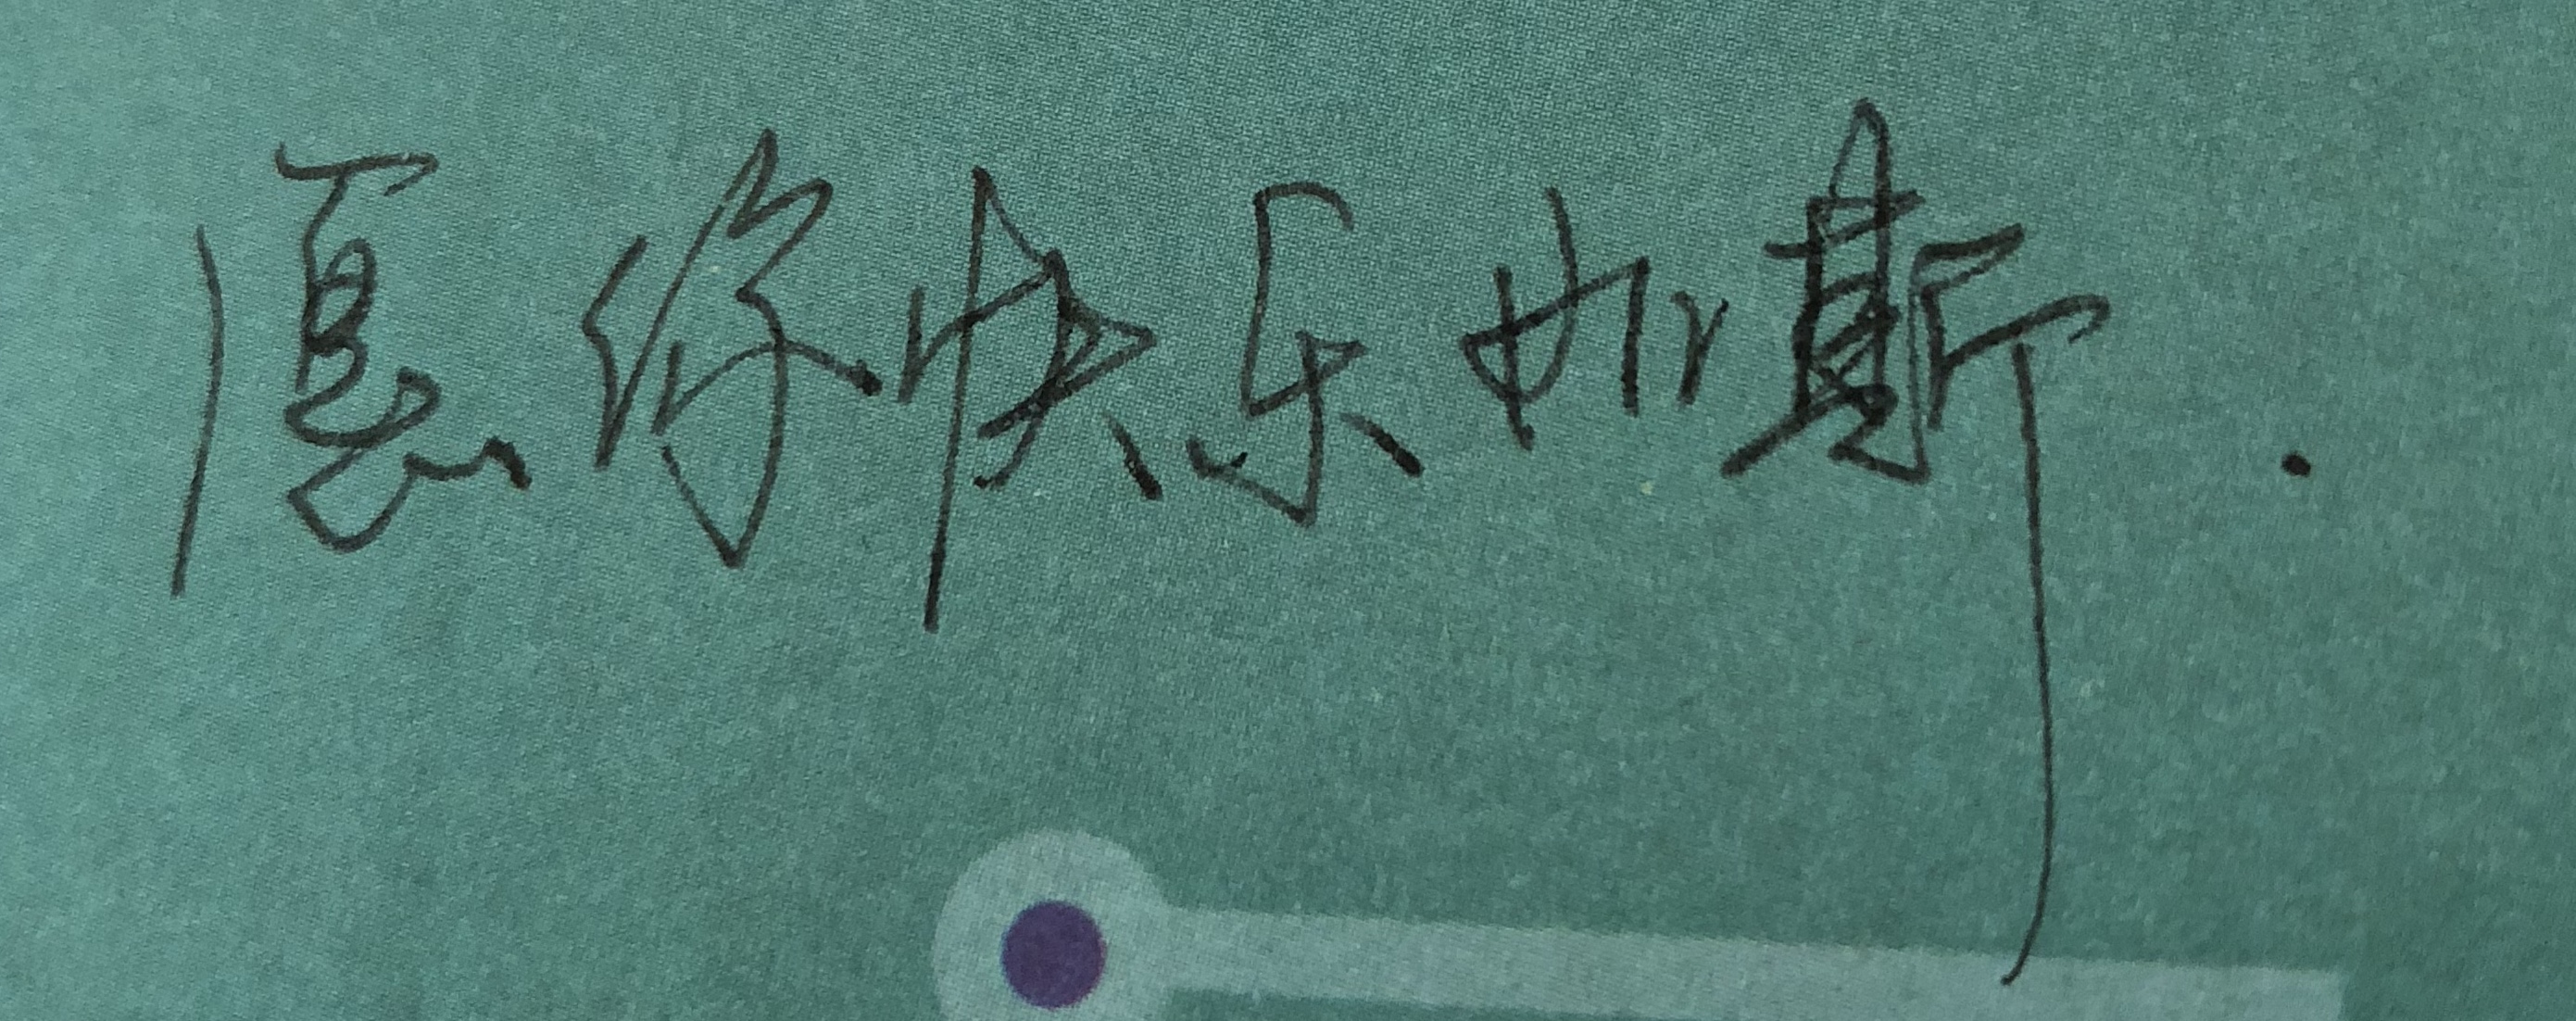 愿你快乐如斯.